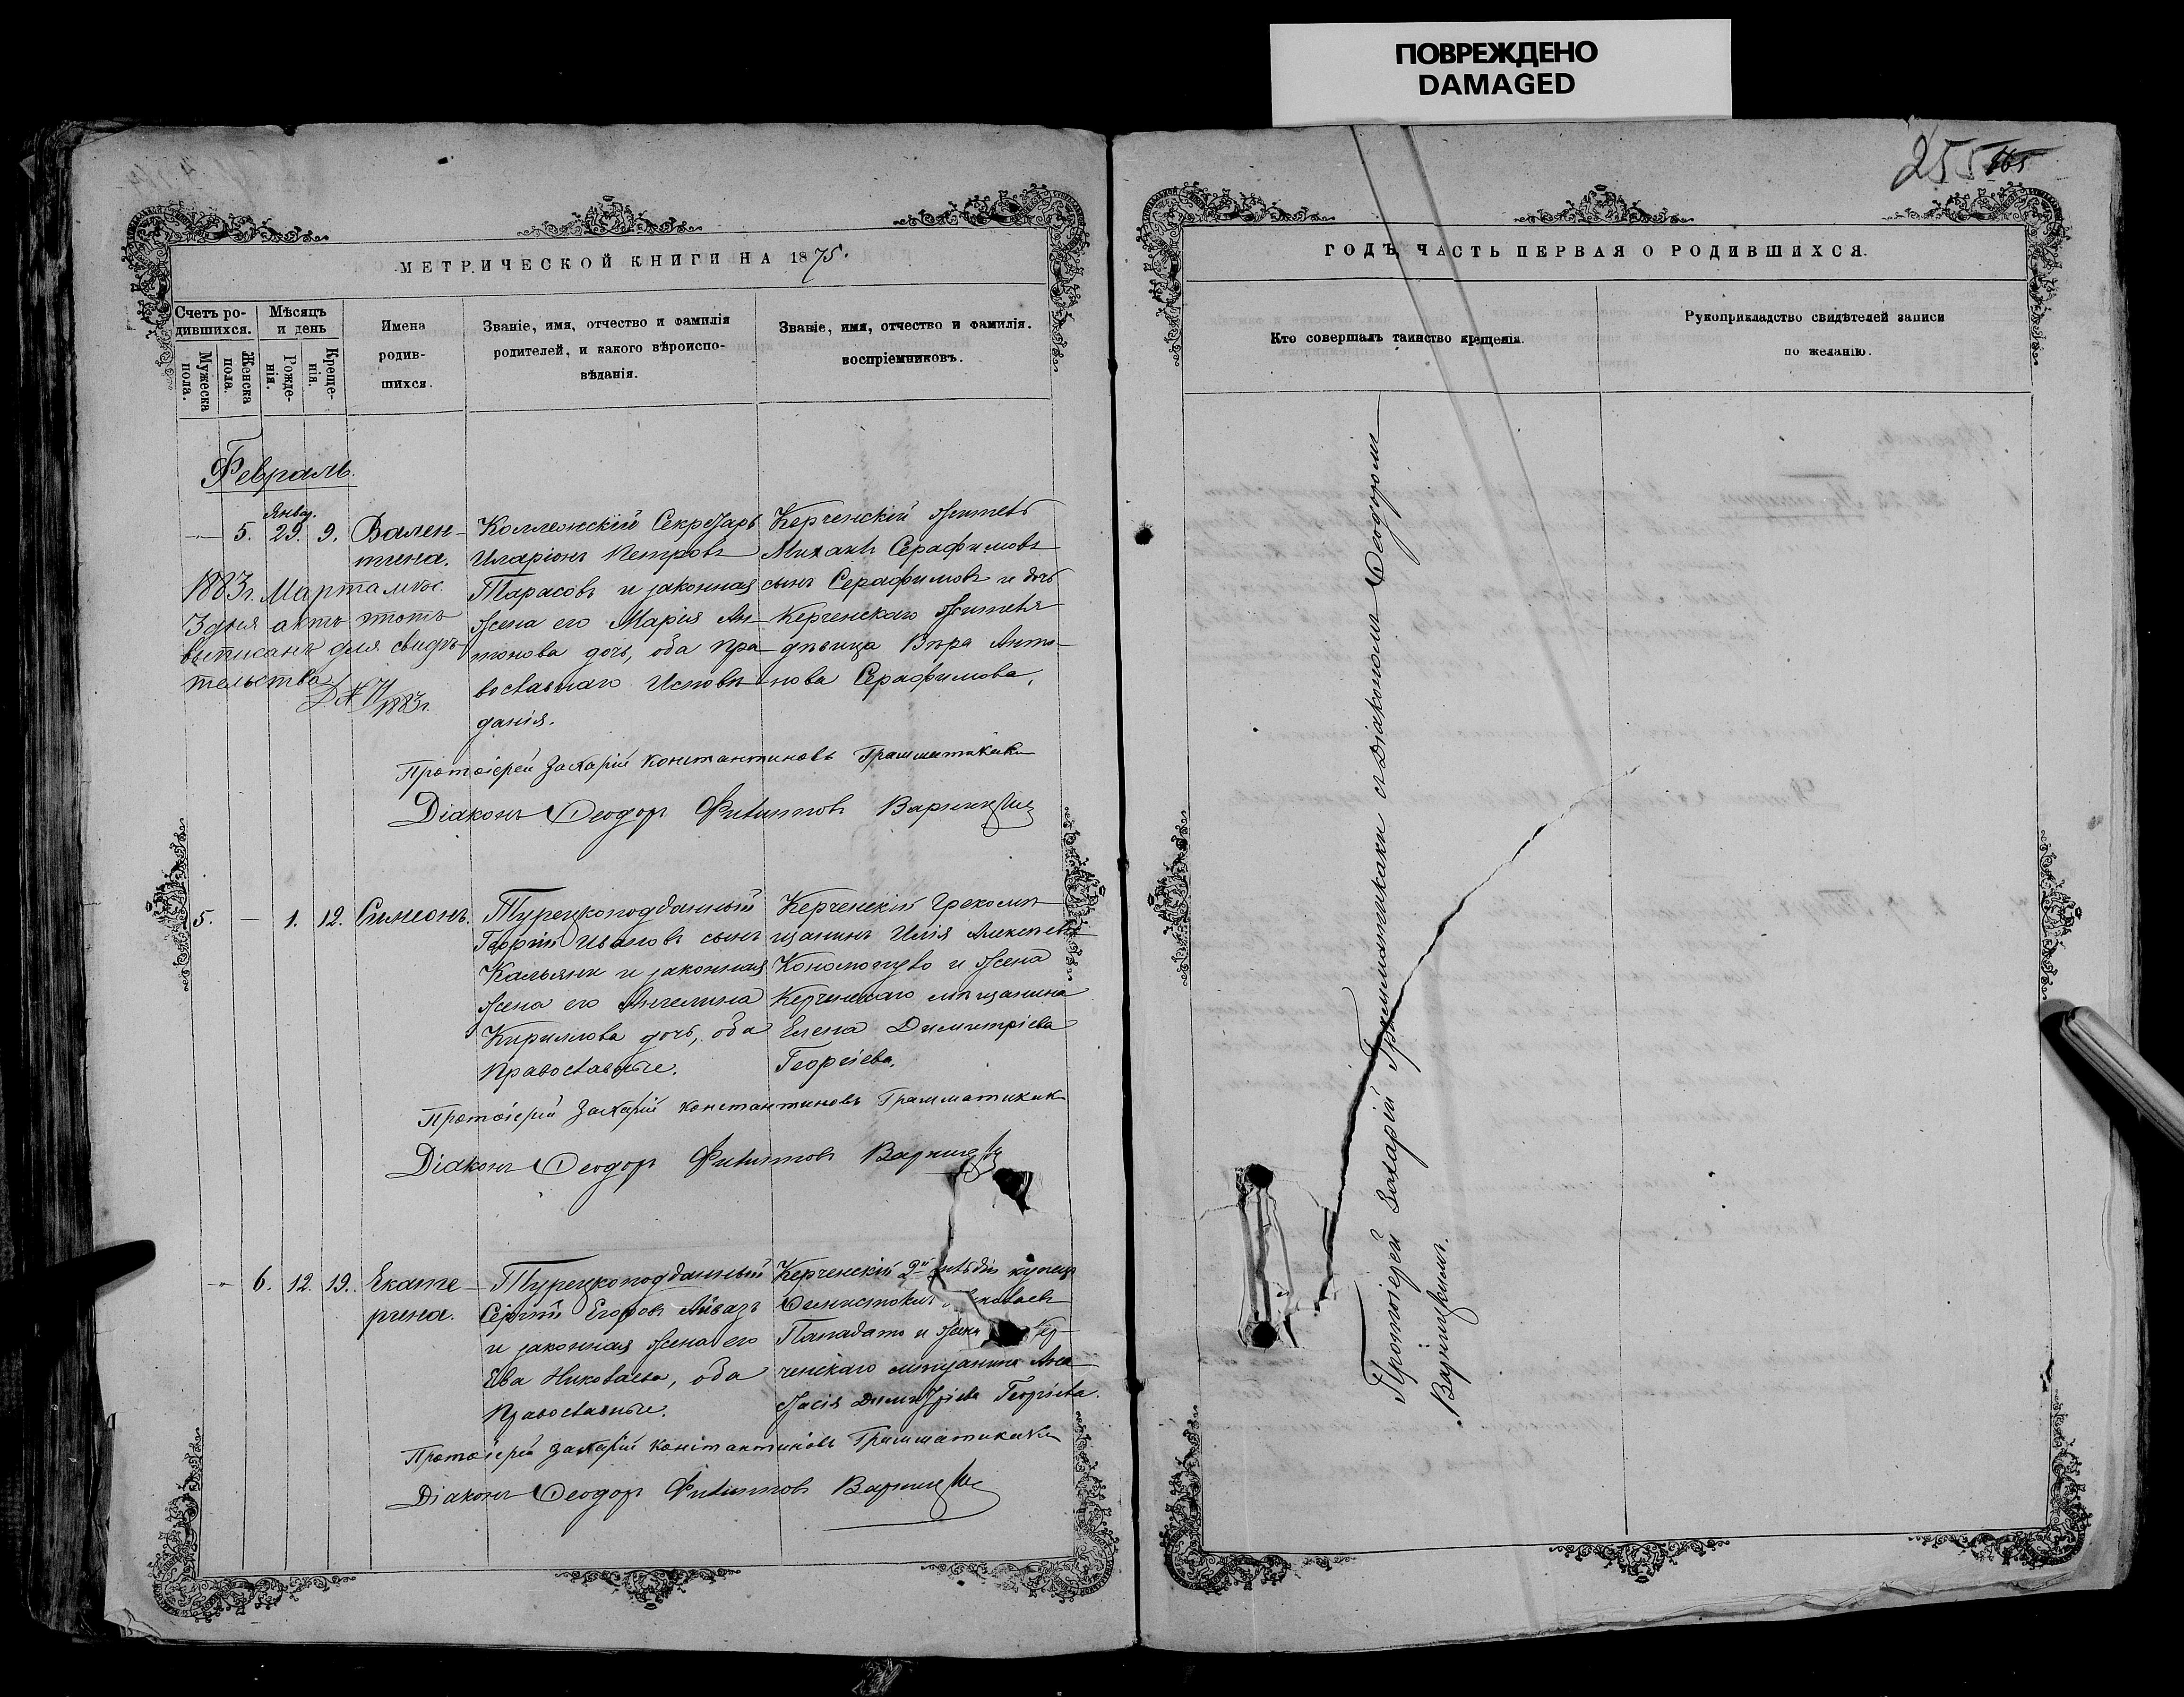 ПОВРЕЖДЕНО
DAMAGED
255 165
МЕТРИЧЕСКОЙ КНИГИ НА 1875.
Счетъ ро-
дившихся.
Мужеска
пола.
Женска
пола.
Мѣсяцъ
и день
Рожде-
нія.
Креще-
нія.
Имена
родив-
шихся.
Званіе, имя, отчество и фамилія
родителей, и какого вѣроиспо-
вѣданія.
Званіе, имя, отчество и фамилія.
воспріемниковъ.
Февраль.
Январ.
5. 29. 9. Вален-
тина.
Коллежскій Секретарь
Иларіонъ Петровъ
Тарасовъ и законная
жена его Марія Ан-
тонова дочь, оба пра-
вославнаго Исповѣ-
данія.
Керченскій житель
Михаилъ Серафимовъ
сынъ Серафимовъ и дочь
Керченскаго жителя
дѣвица Вѣра Анто-
нова Серафимова.
1883г. Марта мѣс.
3 дня актъ этотъ
выписанъ для свидѣ-
тельства
1883г.
Протоіерей Захарій Константиновъ Грамматикаки
Діаконъ Ѳеодоръ Филипповъ Варницкій
5. — 1. 12. Симеонъ.
Турецкоподданный
Георгій Ивановъ сынъ
Кальяни и законная
жена его Ангелина
Кириллова дочь, оба
Православные.
Керченскій Грекомѣ-
щанинъ Илія Алексѣевъ
и жена
Керченскаго мѣщанина
Елена Димитріева
Георгіева.
Протоіерей Захарій Константиновъ Грамматикаки
Діаконъ Ѳеодоръ Филипповъ Варницкій
6. 12. 19. Екате-
рина.
Турецкоподданный
Сергій Егоровъ Айвазъ
и законная жена его
Ева Николаева, оба
Православные.
Керченскій 2й гильдіи купецъ
Пападато и жена Кер-
ченскаго мѣщанина Ана-
стасія Димитріева Георгіева.
Протоіерей Захарій Константиновъ Грамматикаки
Діаконъ Ѳеодоръ Филипповъ Варницкій
ГОДЪ ЧАСТЬ ПЕРВАЯ О РОДИВШИХСЯ.
Кто совершалъ таинство крещенія.
Рукоприкладство свидѣтелей записи
по желанію.
Протоіерей Захарій Грамматикаки съ Діакономъ Ѳеодоромъ
Варницкимъ.